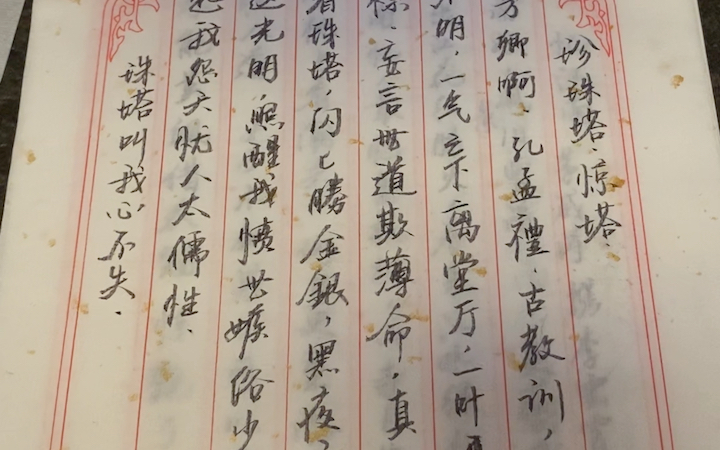 珍珠塔·惊塔·
方卿啊、孔孟禮、古教训，
明，一气之下离堂厅，一时
妄言世道欺薄命，真
看珠塔，闪匕勝金銀，黑夜
光明，照醒我愤世嫉俗少
我怨天尤人太懦性．
珠塔叫我心不失．